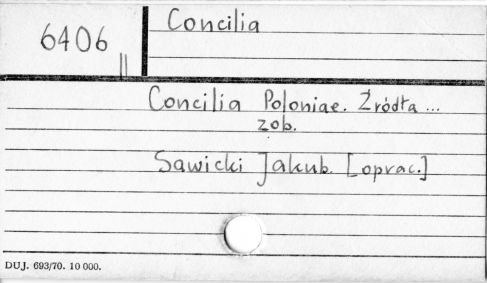 Concilia
6406
Concilia Poloniae. Źródła ...
zob.
Sawicki Jakub. [oprac.]
DUJ. 693/70. 10 000.